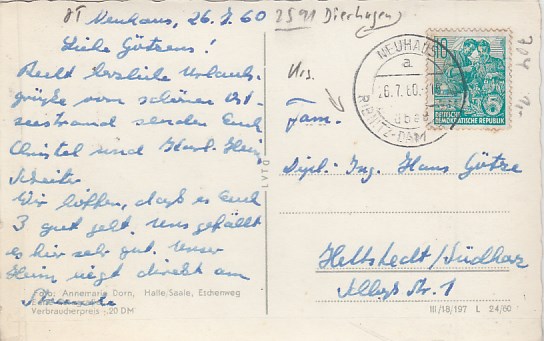 Neuhaus, 26.7.60
2591 Dierhagen
Liebe Götzens!
Recht herzliche Urlaubs-
grüße vom schönen Ost-
seestrand senden Euch
Christel und Karl-Heinz
Wir hoffen, daß es Euch
3 gut geht. Uns gefällt
es hier sehr gut. Unser
Heim liegt direkt am
Strande
Foto: Annemarie Dorn, Halle/Saale, Eschenweg
Verbraucherpreis -,20 DM
LVTO
NEUHAUS
a
26.7.60.
RIBNITZ-DAMG
10
DEUTSCHE
DEMOKRATISCHE REPUBLIK
Fam.
Dipl. Ing. Hans Götze
Hettstedt/Südharz
Str. 1
III/18/197 L 24/60